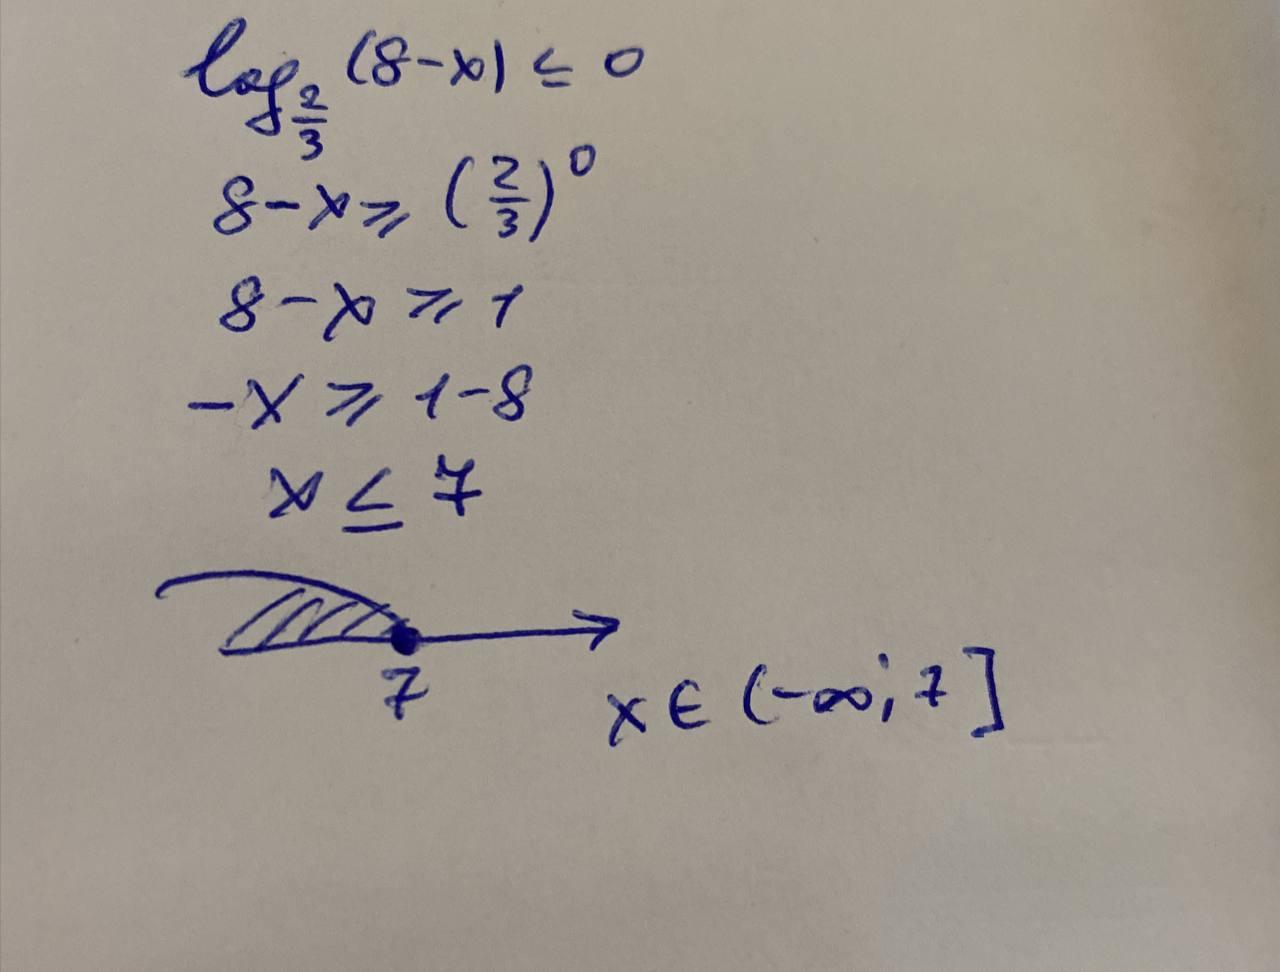 log_{2/3} (8-x) ≤ 0
8-x ≥ (2/3)^0
8-x ≥ 1
-x ≥ 1-8
x ≤ 7
7
x ∈ (-∞; 7]